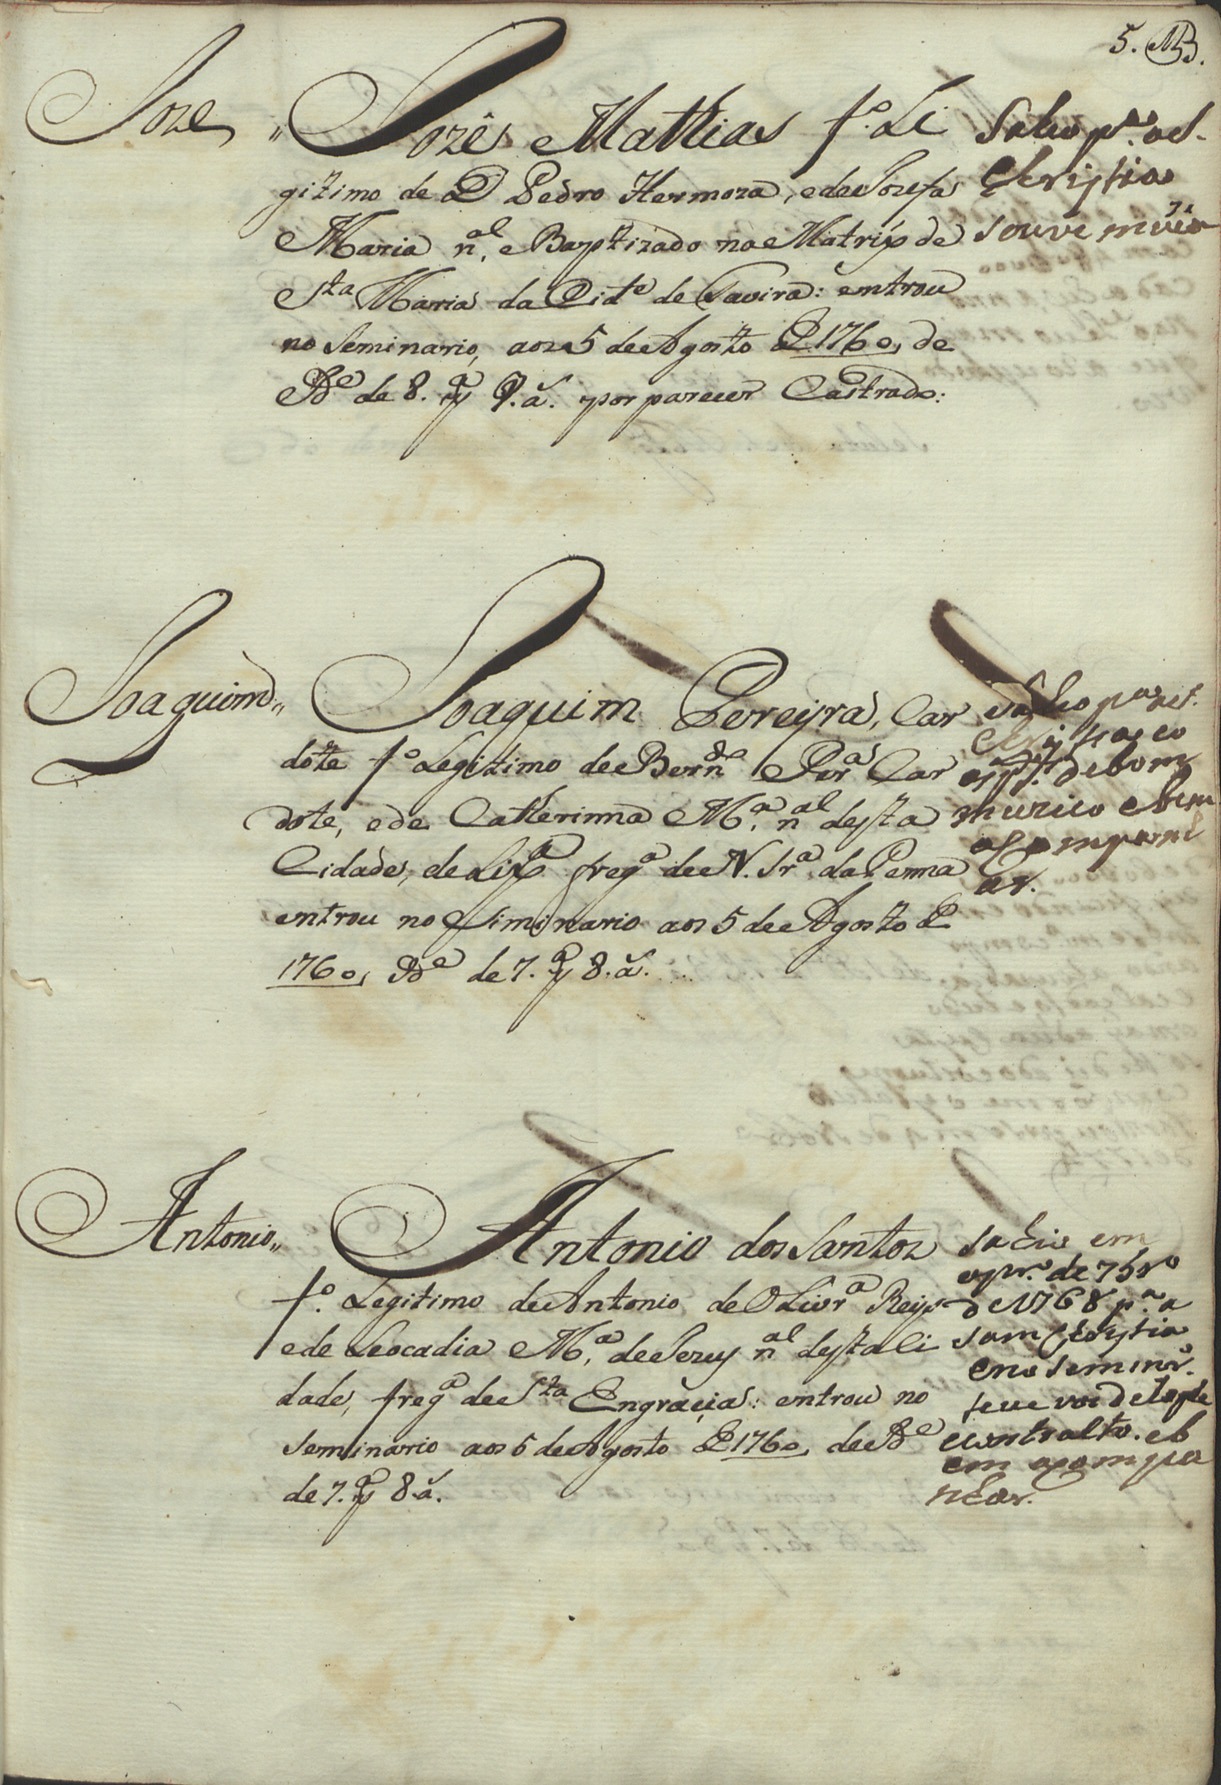 5.
Joze
Jozê Mathias f.º Li
gitimo de D Pedro Hermoza, e de Jozefa
Maria n.al e Baptizado na Matrix de
Sta Maria da Cid.e de Tavira: entrou
no Seminario, aos 5 de Agosto D 1760, de
Id.e de 8. p.a 9. a. por parecer Castrado:
Sahio p.a as S.
Christia
souve
Joaquim
Joaquim Pereyra, Car
dote f.º Legitimo de Bern.do Per.a Car
dote, e de Catherinna M.a n.al desta
Cidade, de Lix.a freg.a de N. Sr.a da Penna
entrou no Siminario aos 5 de Agosto D
1760, Id.e de 7. p.a 8. a.
Sahio p.a as S.
de bom
muzico e bem
acompanh
ar.
Antonio
Antonio dos Santos
f.º Legitimo de Antonio de Oliv.ra Reys
e de Leocadia M.a de Jezus n.al desta Ci
dade, freg.a de Sta Engracia: entrou no
Seminario aos 5 de Agosto D 1760, de Id.e
de 7. p.a 8. a.
Sahio em
o pr.º de 7br.o
de 1768 p.a a
sam Christia
e no Seminr.º
teve vox de tiple
e contralto. e b
em acompa
nhar.